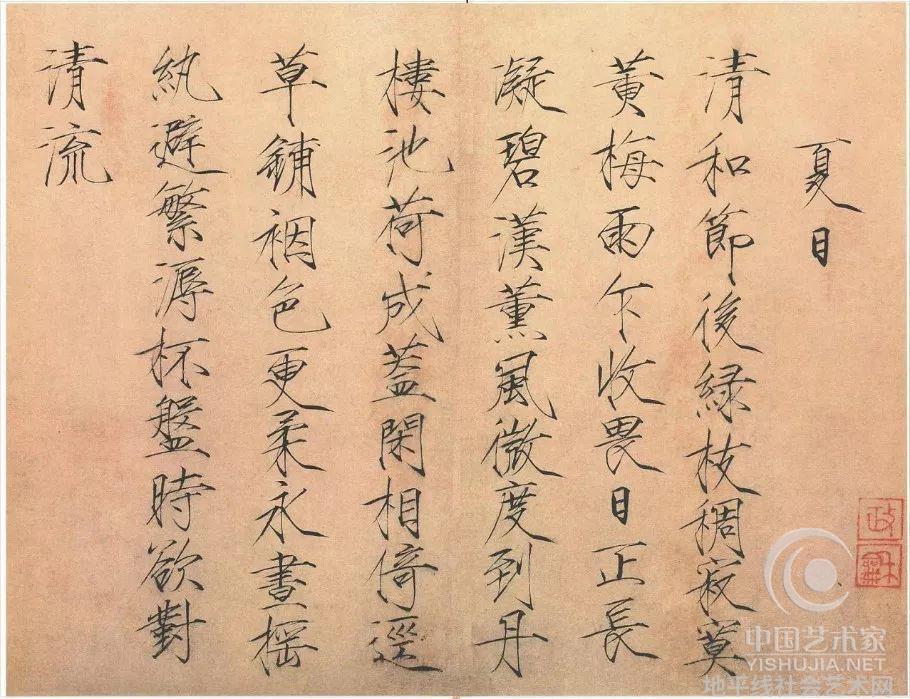 夏日
清和節後緑枝稠寂寞
黄梅雨乍收畏日正長
凝碧漢薰風微度到丹
樓池荷成蓋閑相倚逕
草鋪裀色更柔永晝搖
紈避繁溽杯盤時欲對
清流
政龢
中国艺术家
YISHUJIA.NET
地平线社会艺术网